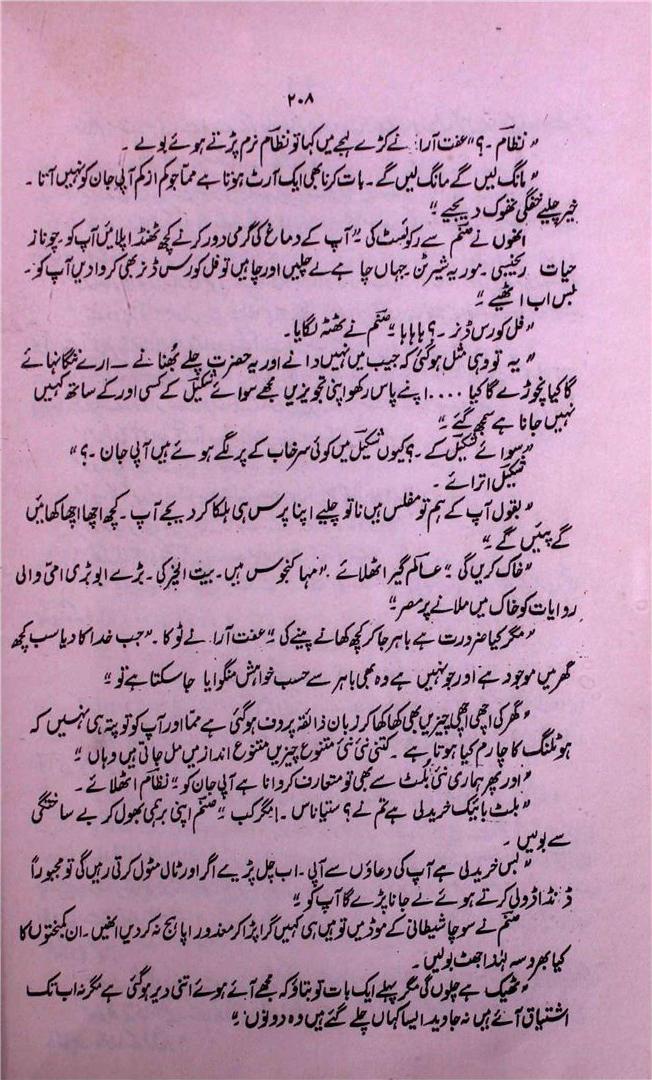 ۲۰۸
" نظام ۔؟ " عفت آرا نے کڑے لہجے میں کہا تو نظام نرم پڑتے ہوئے بولے ۔
" مانگ لیں گے مانگ لیں گے ۔ بات کرنا بھی ایک آرٹ ہوتا ہے مما جو کم از کم آپی جان کو نہیں آتا ۔
خیر چلیے خفگی تھوک دیجیے "
انھوں نے صنم سے رکوئسٹ کی ۔" آپ کے دماغ کی گرمی دور کرنے کچھ ٹھنڈا پلائیں آپ کو جو ناز
حیات ریجنسی ۔ موریہ شیرٹن جہاں چاہے لے چلیں اور چاہیں تو فل کورس ڈنر بھی کروا دیں آپ کو ۔
بس اب اٹھیے "
" فل کورس ڈنر ۔؟ ہاہاہا " صنم نے ٹھٹہ لگایا ۔
" یہ تو وہی مثل ہوگئی کہ جیب میں نہیں دانے اور یہ حضرت چلے بھنانے ـــ ارے ننگا نہائے
گا کیا نچوڑے گا کیا .... اپنے پاس رکھو اپنی تجویزیں مجھے سوائے شکیل کے کسی اور کے ساتھ کہیں
نہیں جانا ہے سمجھ گئے "
" سوائے شکیل کے ۔؟ کیوں شکیل میں کوئی سرخاب کے پر لگے ہوئے ہیں آپی جان ۔؟ "
شکیل اترائے ۔
" بقول آپ کے ہم تو مفلس ہیں نا تو چلیے اپنا پرس ہی ہلکا کر دیجے آپ ۔ کچھ اچھا اچھا کھائیں
گے پئیں گے "
" خاک کریں گی " عالم گیر اٹھلائے ۔" مہا کنجوس ہیں ۔ بیت الخیر کی ۔ بڑے ابو بڑی امی والی
روایات کو خاک میں ملانے پر مصر "
" مگر کیا ضرورت ہے باہر جا کر کچھ کھانے پینے کی " عفت آرا نے ٹوکا ۔" جب خدا کا دیا سب کچھ
گھر میں موجود ہے اور جو نہیں ہے وہ بھی باہر سے حسب خواہش منگوایا جا سکتا ہے تو "
" گھر کی اچھی اچھی چیزیں بھی کھا کھا کر زبان ذائقہ پروف ہوگئی ہے مما اور آپ کو تو پتہ ہی نہیں کہ
ہوٹلنگ کا چارم کیا ہوتا ہے ۔ کتنی نئی نئی متنوع چیزیں متنوع انداز میں مل جاتی ہیں وہاں "
" اور پھر ہماری نئی بلٹ سے بھی تو متعارف کروانا ہے آپی جان کو " نظام اٹھلائے ۔
" بلٹ بائیک خرید لی ہے تم نے ؟ ستیاناس ۔ مگر کب " صنم اپنی برہمی بھول کر بے ساختگی
سے بولیں ۔
" بس خرید لی ہے آپ کی دعاؤں سے آپی ۔ اب چل پڑیے اگر اور ٹال مٹول کرتی رہیں گی تو مجبوراً
ڈنڈا ڈولی کرتے ہوئے لے جانا پڑے گا آپ کو "
صنم نے سوچا شیطانی کے موڈ میں تو ہیں ہی کہیں گرا پڑا کر معذور اپاہج نہ کر دیں انھیں ۔ ان کمبختوں کا
کیا بھروسہ لہٰذا جھٹ بولیں ۔
" ٹھیک ہے چلوں گی مگر پہلے ایک بات تو بتاؤ کہ مجھے آئے ہوئے اتنی دیر ہوگئی ہے مگر نہ اب تک
اشتیاق آئے ہیں نہ جاوید ایسا کہاں چلے گئے ہیں وہ دونوں "